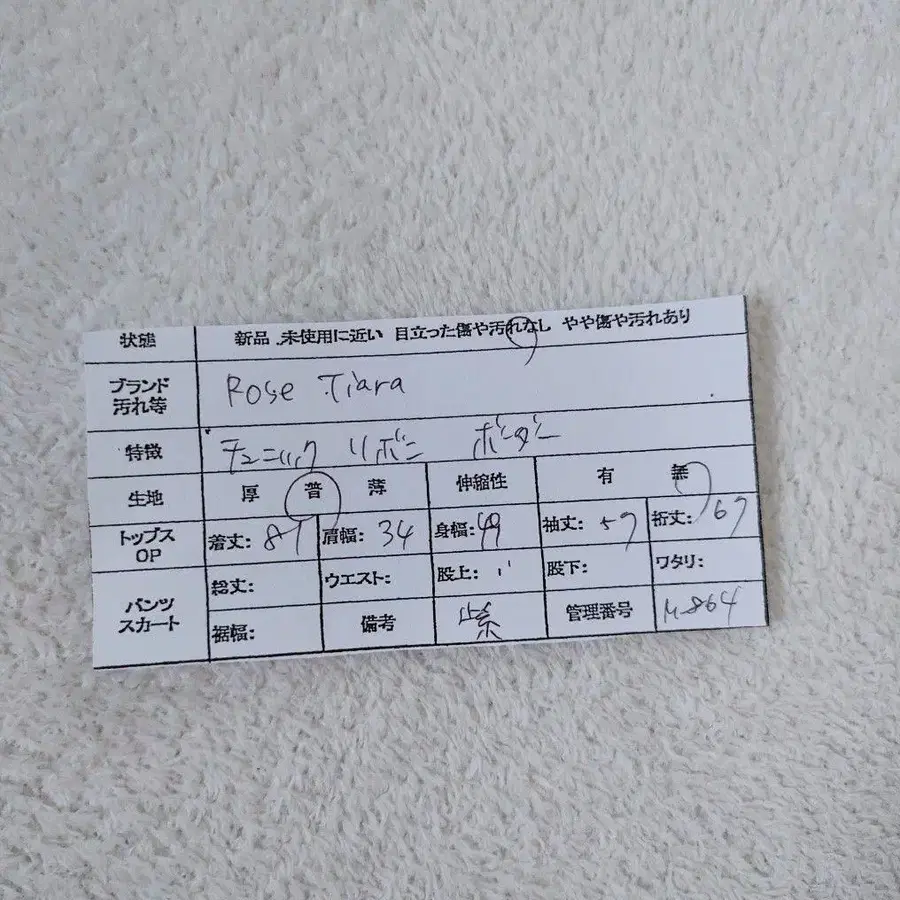 状態 新品 .未使用に近い 目立った傷や汚れなし やや傷や汚れあり
ブランド
汚れ等 Rose Tiara
特徴 チュニック リボン ボーダー
生地 厚 普 薄 伸縮性 有 無
トップス
OP 着丈: 87 肩幅: 34 身幅: 49 袖丈: 57 裄丈: 67
パンツ
スカート 総丈: ウエスト: 股上: 股下: ワタリ:
裾幅: 備考 紫 管理番号 M864